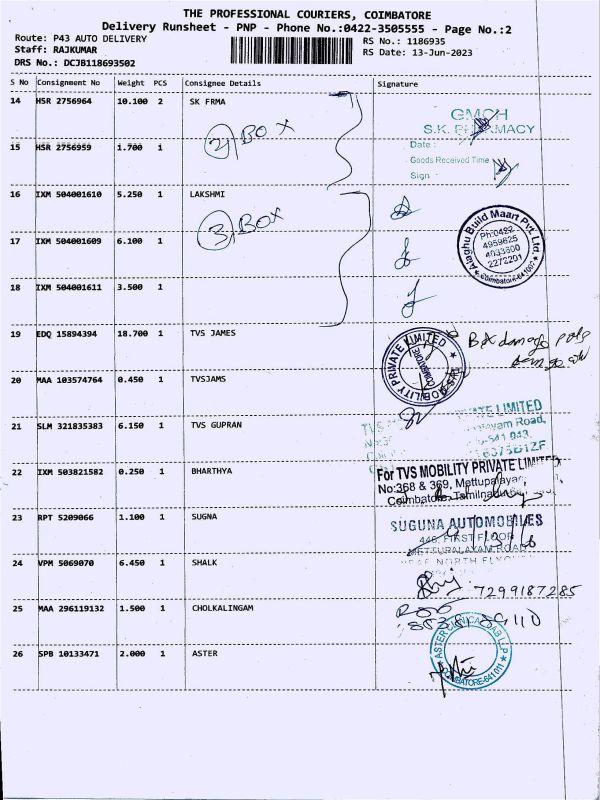 THE PROFESSIONAL COURIERS, COIMBATORE
Delivery Runsheet - PNP - Phone No.:0422-3505555 - Page No.:2
Route: P43 AUTO DELIVERY
RS No.: 1186935
Staff: RAJKUMAR
RS Date: 13-Jun-2023
DRS No.: DCJB118693502
S No Consignment No Weight PCS Consignee Details Signature
14 HSR 2756964 10.100 2 SK FRMA
2) BOX
GMCH
S.K. PHARMACY
15 HSR 2756959 1.700 1
Date :
Goods Received Time
Sign
16 IXM 504001610 5.250 1 LAKSHMI
3) BOX
17 IXM 504001609 6.100 1
Alaghu Build Maart Pvt. Ltd.
Ph:0422
4959625
4033500
2272201
Coimbatore-641007
18 IXM 504001611 3.500 1
19 EDQ 15894394 18.700 1 TVS JAMES
Box damage
MOBILITY PRIVATE LIMITED
COIMBATORE
20 MAA 103574764 0.450 1 TVSJAMS
21 SLM 321835383 6.150 1 TVS GUPRAN
TVS
LIMITED
Road,
641 043.
22 IXM 503821582 0.250 1 BHARTHYA
For TVS MOBILITY PRIVATE LIMITED
No:368 & 369, Mettupalayam
Coimbatore, Tamilnadu
23 RPT 5209066 1.100 1 SUGNA
SUGUNA AUTOMOBILES
446, FIRST FLOOR
METTUPALAYAM ROAD
NEAR NORTH FLYOVER
24 VPM 5069070 6.450 1 SHALK
7299187285
25 MAA 296119132 1.500 1 CHOLKALINGAM
26 SPB 10133471 2.000 1 ASTER
ASTER CLINICAL LAB LLP
COIMBATORE-641011